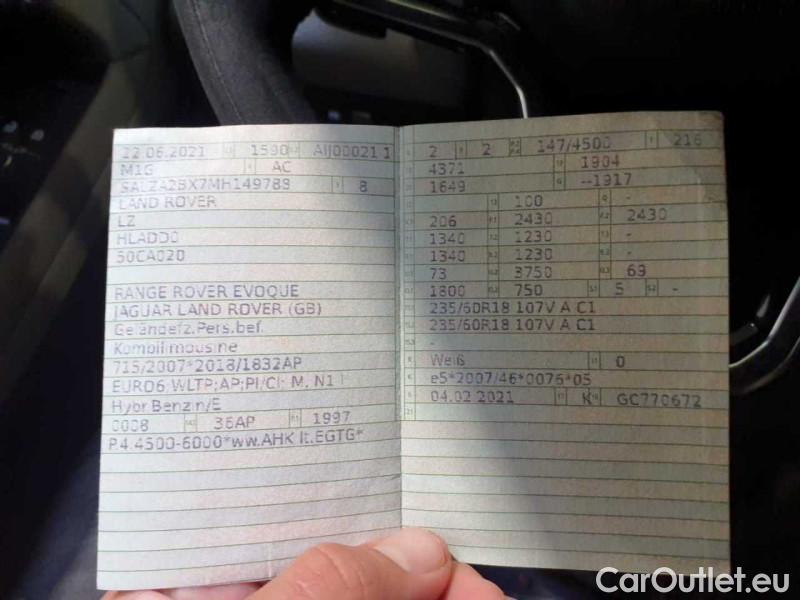 22.06.2021 1590 AIJ00021 1
M1G AC
SALZA2BX7MH149789 8
LAND ROVER
LZ
HLADD0
50CA020
RANGE ROVER EVOQUE
JAGUAR LAND ROVER (GB)
Geländefz.Pers.bef.
Kombilimousine
715/2007*2018/1832AP
EURO6;WLTP;AP;PI/CI; M, N1 I
Hybr.Benzin/E
0008 36AP 1997
P.4:4500-6000*ww.AHK lt.EGTG*
2 2 147/4500 216
4371 1904
1649 --1917
- 100 -
206 2430 2430
1340 1230 -
1340 1230 -
73 3750 69
1800 750 5 -
235/60R18 107V A C1
235/60R18 107V A C1
-
Weiß 0
e5*2007/46*0076*05
04.02.2021 K GC770672
CarOutlet.eu